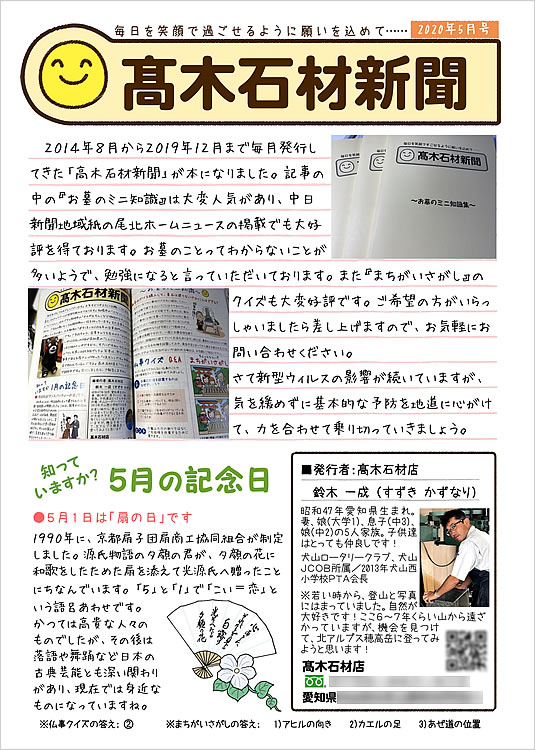 毎日を笑顔で過ごせるように願いを込めて……
2020年5月号
髙木石材新聞
2014年8月から2019年12月まで毎月発行し
てきた「髙木石材新聞」が本になりました。記事の
中の『お墓のミニ知識』は大変人気があり、中日
新聞地域紙の尾北ホームニュースの掲載でも大好
評を得ております。お墓のことってわからないことが
多いようで、勉強になると言っていただいております。また『まちがいさがし』の
クイズも大変好評です。ご希望の方がいらっ
しゃいましたら差し上げますので、お気軽にお
問い合わせください。
さて新型ウィルスの影響が続いていますが、
気を緩めずに基本的な予防を地道に心がけ
て、力を合わせて乗り切っていきましょう。
髙木石材新聞
～お墓のミニ知識集～
髙木石材新聞
仏事クイズ Q&A
まちがいさがし
1月の記念日
知って
いますか?
5月の記念日
●5月1日は「扇の日」です
1990年に、京都扇子団扇商工協同組合が制定
しました。源氏物語の夕顔の君が、夕顔の花に
和歌をしたためた扇を添えて光源氏へ贈ったこと
にちなんでいます。「5」と「1」で「こい＝恋」と
いう語呂あわせです。
かつては高貴な人々の
ものでしたが、その後は
落語や舞踊など日本の
古典芸能とも深い関わり
があり、現在では身近な
ものになっていますね。
■発行者：髙木石材店
鈴木 一成（すずき かずなり）
昭和47年愛知県生まれ。
妻、娘(大学1)、息子(中3)、
娘(中2)の5人家族。子供達
はとっても仲良しです！
犬山ロータリークラブ、犬山
JCOB所属／2013年犬山西
小学校PTA会長
※若い時から、登山と写真
にはまっていました。自然が
大好きです！ここ6～7年くらい山から遠ざ
かっていますが、機会を見つけ
て、北アルプス穂高岳に登ってみ
ようと思います！
髙木石材店
愛知県
※仏事クイズの答え：②
※まちがいさがしの答え：
1)アヒルの向き
2)カエルの足
3)あぜ道の位置